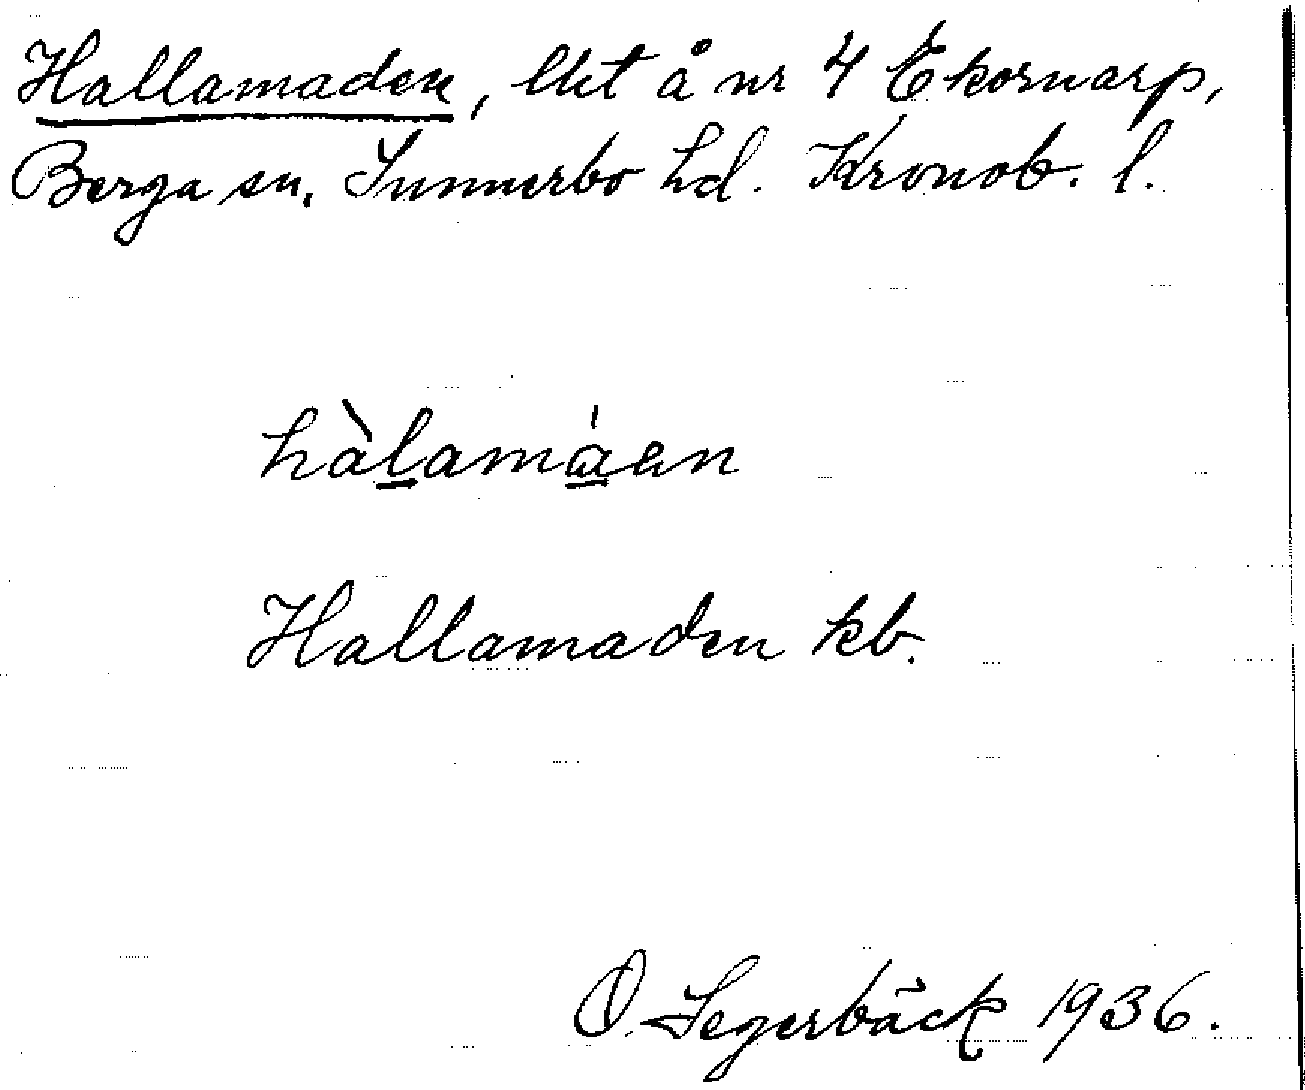 Hallamaden, lht å nr 4 Ekornarp,
Berga sn, Sunnerbo hd. Kronob. l.
hàlamáen
Hallamaden kb.
O. Segerbäck 1936.